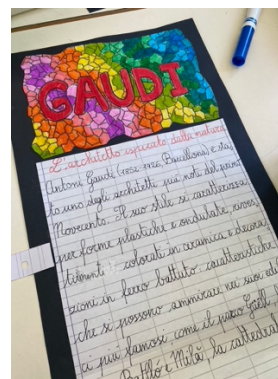 GAUDI
L'architetto ispirato dalla natura
Antoni Gaudí (1852-1926, Barcellona) è sta
to uno degli architetti più noti del primo
Novecento. Il suo stile si caratterizza
per forme plastiche e ondulate, rives
timenti colorati in ceramica e decora
zioni in ferro battuto, caratteristiche
che si possono ammirare nei suoi edifi
ci più famosi come il parco Güell
Batlló e Milà, la cattedral